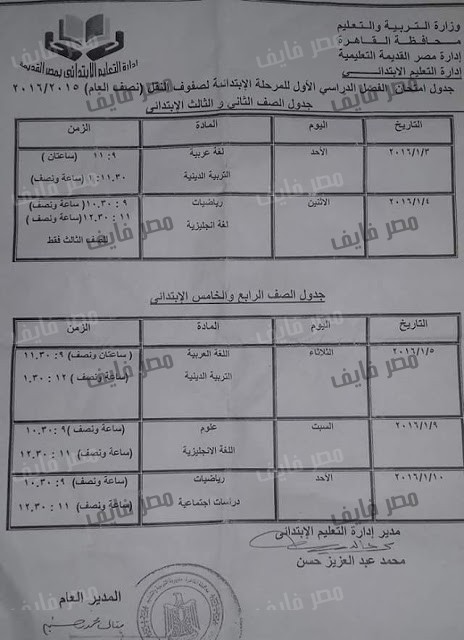 وزارة التربية والتعليم
محافظة القاهرة
إدارة مصر القديمة التعليمية
إدارة التعليم الابتدائي
إدارة التعليم الابتدائي بمصر القديمة
جدول امتحان الفصل الدراسي الأول للمرحلة الابتدائية لصفوف النقل (نصف العام) ٢٠١٦/٢٠١٥
جدول الصف الثاني و الثالث الإبتدائي
التاريخ اليوم المادة الزمن
٢٠١٦/١/٣ الأحد لغة عربية ٩ : ١١ (ساعتان)
التربية الدينية ١١.٣٠ : ١ (ساعة ونصف)
٢٠١٦/١/٤ الاثنين رياضيات ٩ : ١٠.٣٠ (ساعة ونصف)
لغة انجليزية ١١ : ١٢.٣٠ (ساعة ونصف)
للصف الثالث فقط
جدول الصف الرابع والخامس الإبتدائي
التاريخ اليوم المادة الزمن
٢٠١٦/١/٥ الثلاثاء اللغة العربية ٩ : ١١.٣٠ (ساعتان ونصف)
التربية الدينية ١٢ : ١.٣٠ (ساعة ونصف)
٢٠١٦/١/٩ السبت علوم ٩ : ١٠.٣٠ (ساعة ونصف)
اللغة الانجليزية ١١ : ١٢.٣٠ (ساعة ونصف)
٢٠١٦/١/١٠ الأحد رياضيات ٩ : ١٠.٣٠ (ساعة ونصف)
دراسات اجتماعية ١١ : ١٢.٣٠ (ساعة ونصف)
مدير إدارة التعليم الإبتدائي
محمد عبد العزيز حسن
المدير العام
مصر فايف